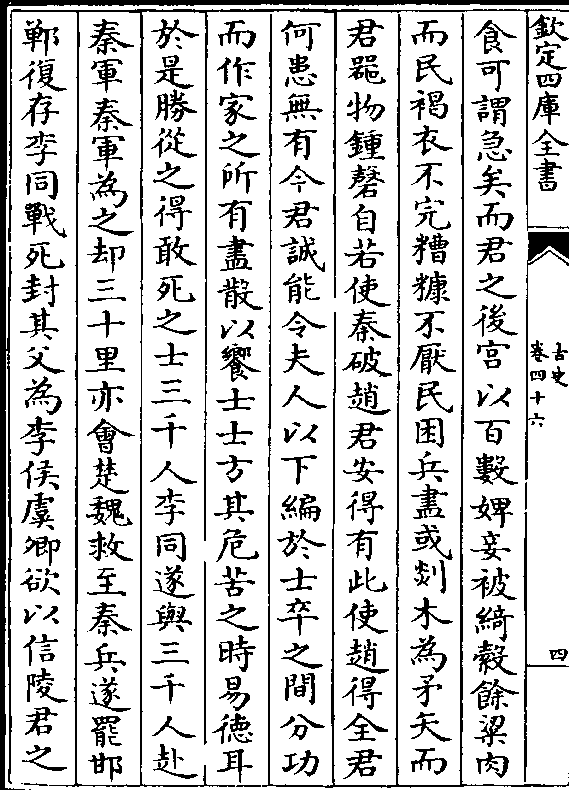 欽定四庫全書
古史
卷四十六
四
食可謂急矣而君之後宮以百數婢妾被綺縠餘粱肉
而民褐衣不完糟糠不厭民困兵盡或剡木為矛矢而
君器物鍾磬自若使秦破趙君安得有此使趙得全君
何患無有今君誠能令夫人以下編於士卒之間分功
而作家之所有盡散以饗士士方其危苦之時易徳耳
於是勝從之得敢死之士三千人李同遂與三千人赴
秦軍秦軍為之却三十里亦會楚魏救至秦兵遂罷邯
鄲復存李同戰死封其父為李侯虞卿欲以信陵君之